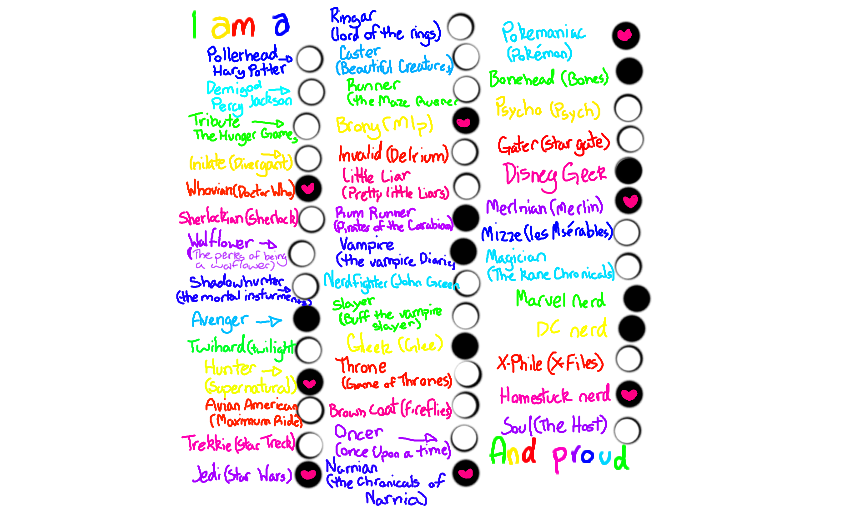 I am a
Pollerhead
Hary Potter
Demigod
Percy Jackson
Tribute
The Hunger Games
Initate (Divergant)
Whovian (Doctor Who)
Sherlockian (Sherlock)
Walflower
(The perks of being
a walflower)
Shadowhunter
(the mortal insturments)
Avenger
Twihard (twilight
Hunter
(Supernatural)
Avian American
(Maximum Ride)
Trekkie (Star Treck)
Jedi (Star Wars)
Ringar
(lord of the rings)
Caster
(Beautiful Creatures)
Runner
(the Maze Runner
Brony (Mlp)
Invalid (Delrium)
Little Liar
(Pretty little Liars)
Rum Runner
(Pirates of the Carabian)
Vampire
(the vampire Diaries)
Nerdfighter (John Green
Slayer
(Buff the vampire
slayer)
Gleek (Glee)
Throne
(Game of Thrones)
Brown coat (Fireflies)
Oncer
(once Upon a time)
Narnian
(the Chronicals of
Narnia)
Pokemaniac
(Pokémon)
Bonehead (Bones)
Psycho (Psych)
Gater (Star gate)
Disney Geek
Merlnian (Merlin)
Mizze (les Msérables)
Magician
(The Kane Chronicals)
Marvel nerd
DC nerd
X-Phile (X-Files)
Homestuck nerd
Soul (The Host)
And proud